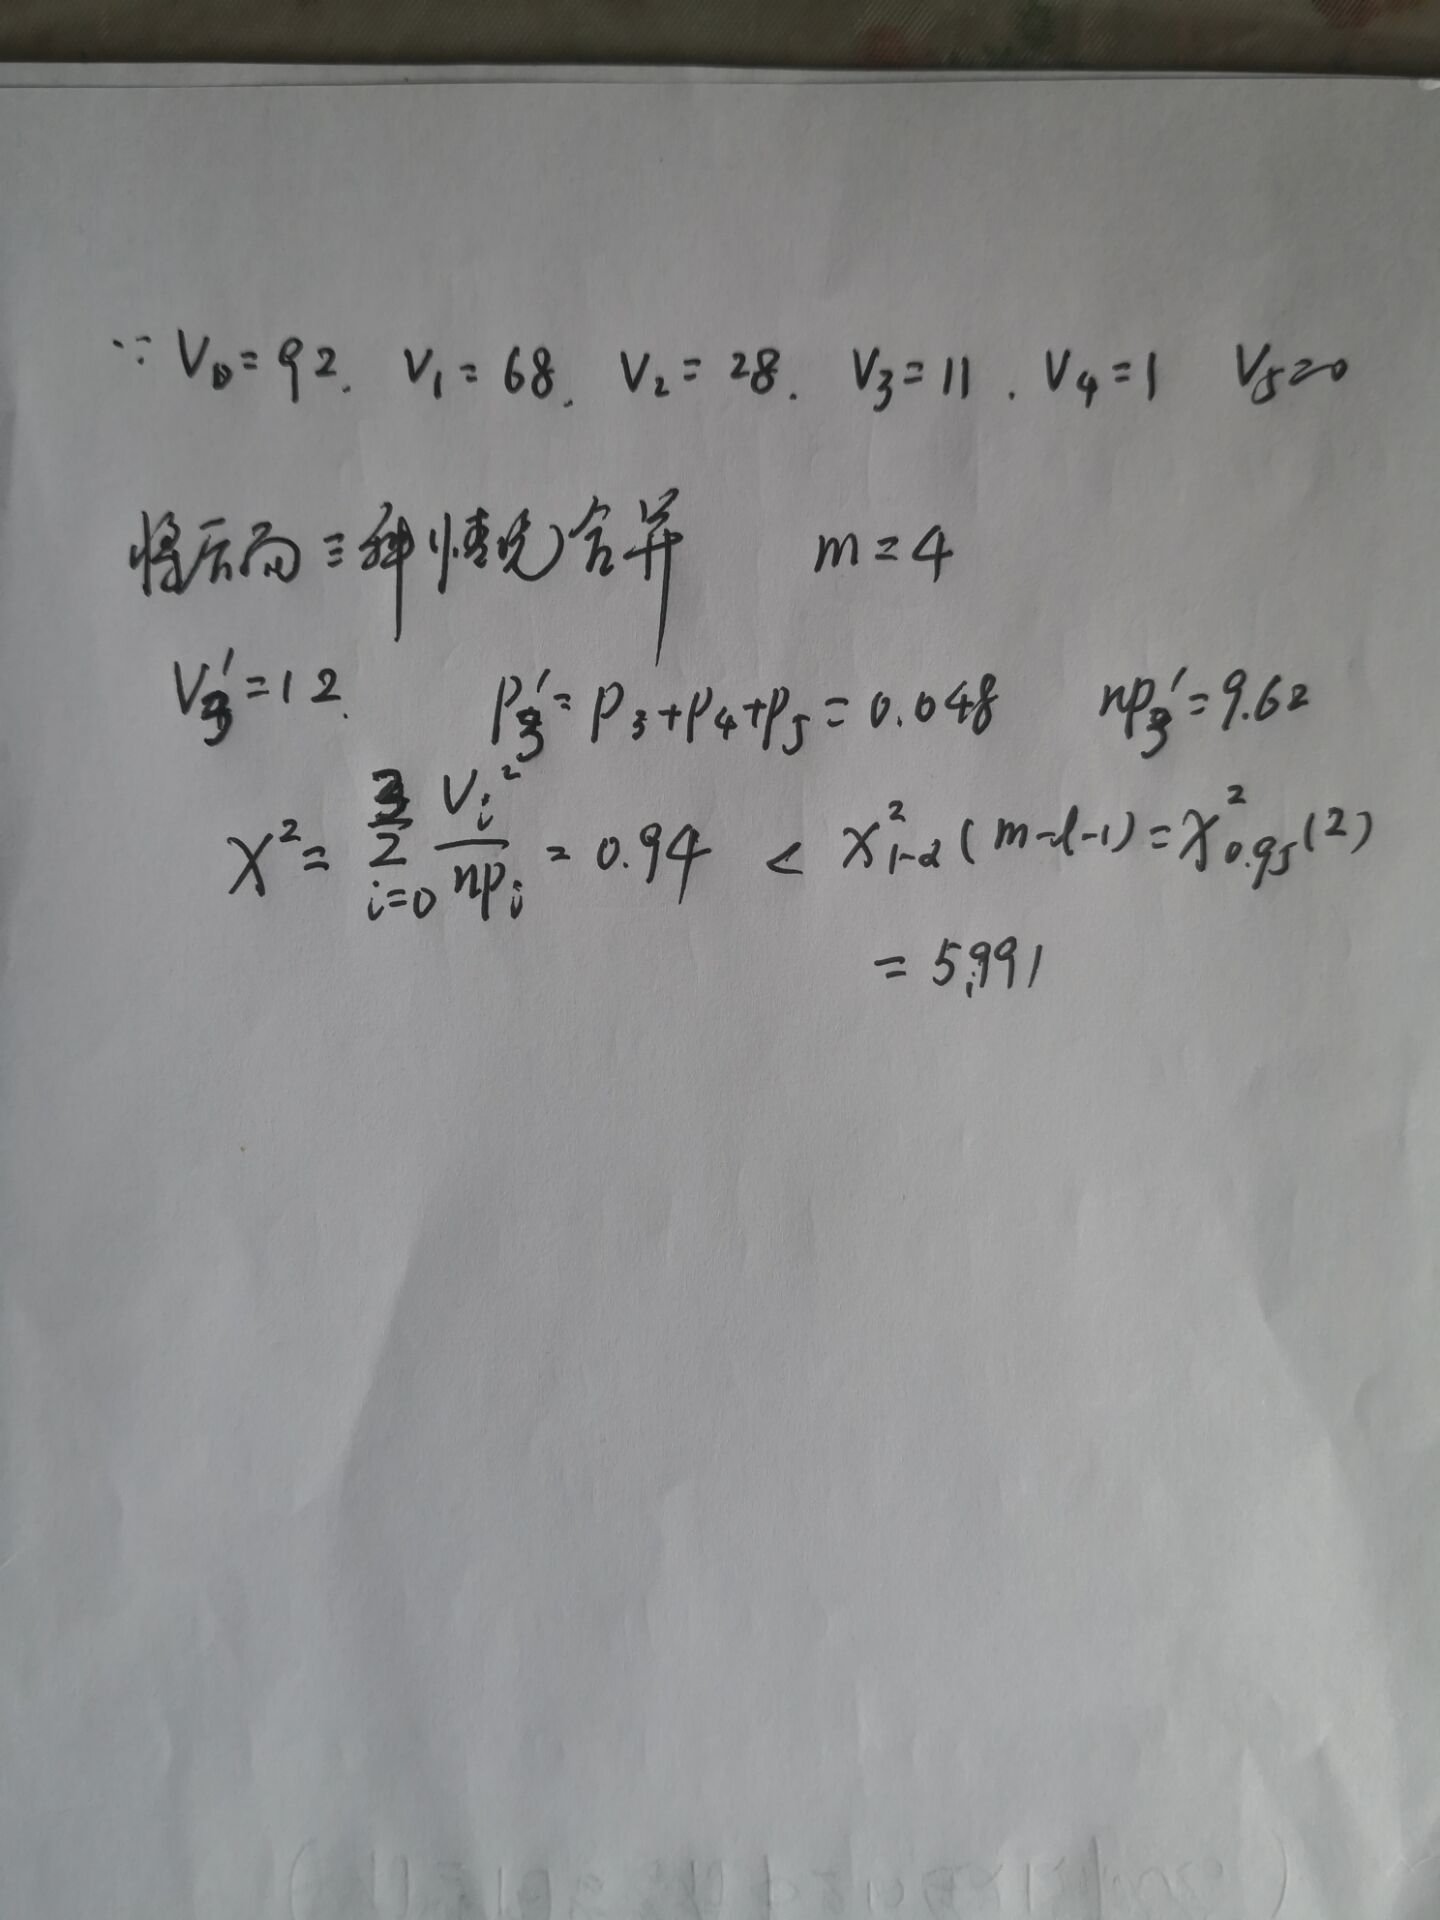 ∵ V₀=92. V₁=68. V₂=28. V₃=11. V₄=1 V₅=0
将后面三种情况合并 m=4
V₃'=12. p₃'=p₃+p₄+p₅=0.048 np₃'=9.62
χ²=∑_{i=0}^{3} Vᵢ²/npᵢ = 0.94 < χ²_{1-α}(m-l-1)=χ²_{0.95}(2)
=5.991